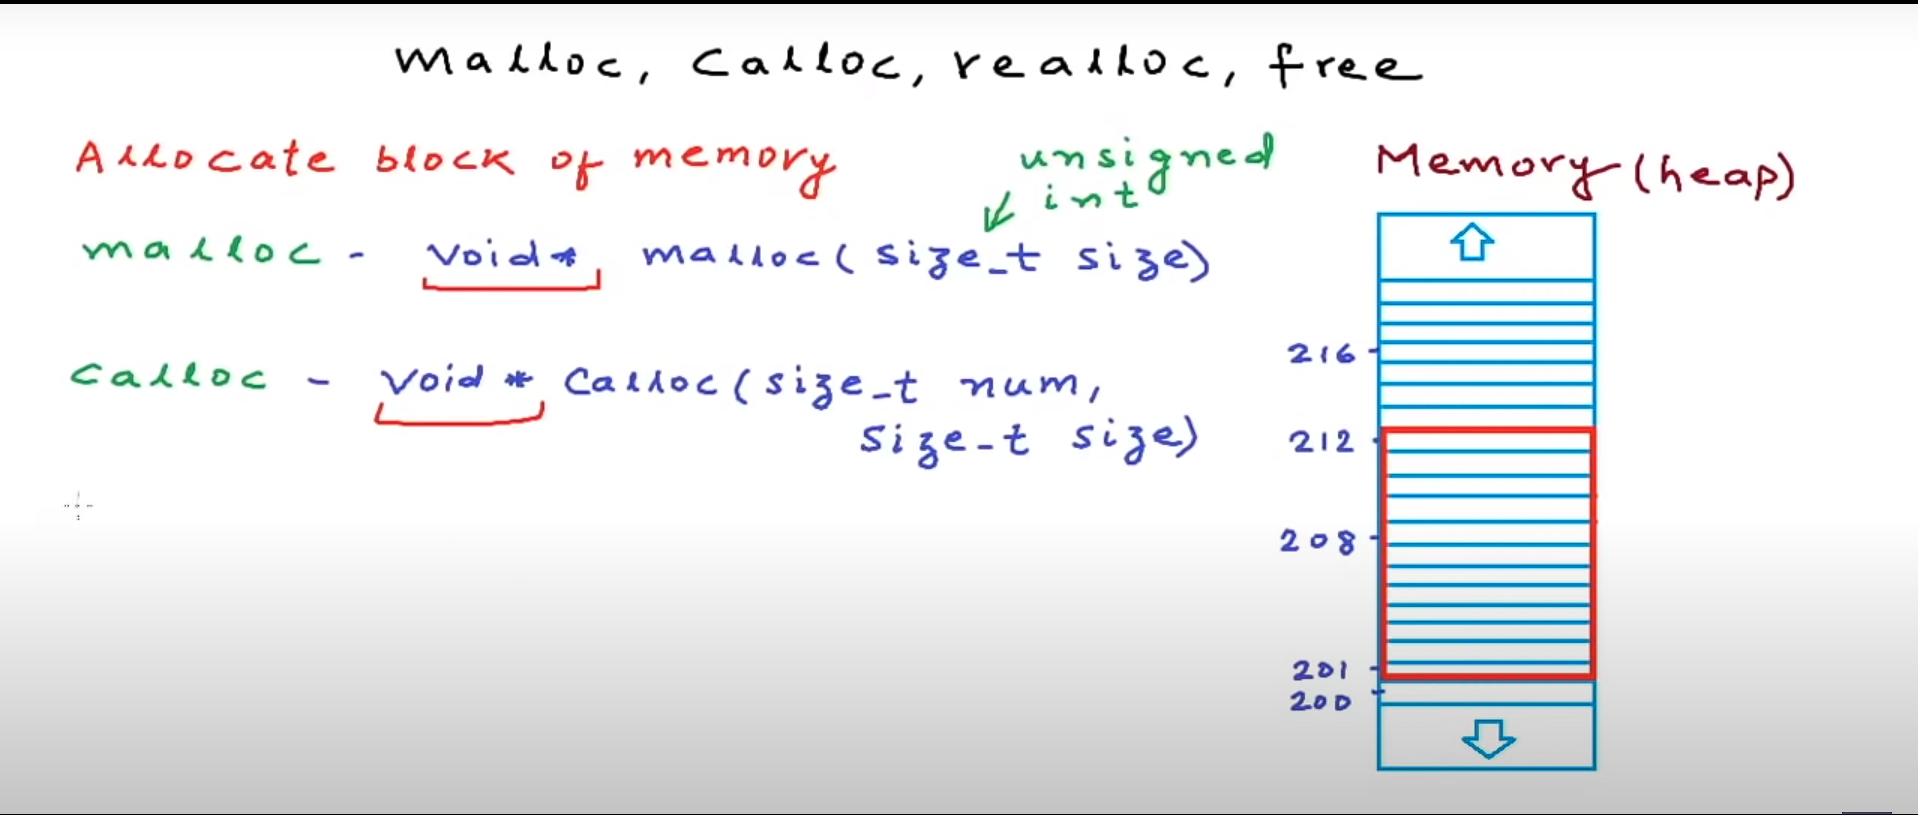 malloc, calloc, realloc, free
Allocate block of memory
unsigned
int
malloc - void* malloc(size_t size)
calloc - void * calloc(size_t num,
size-t size)
Memory (heap)
216
212
208
201
200